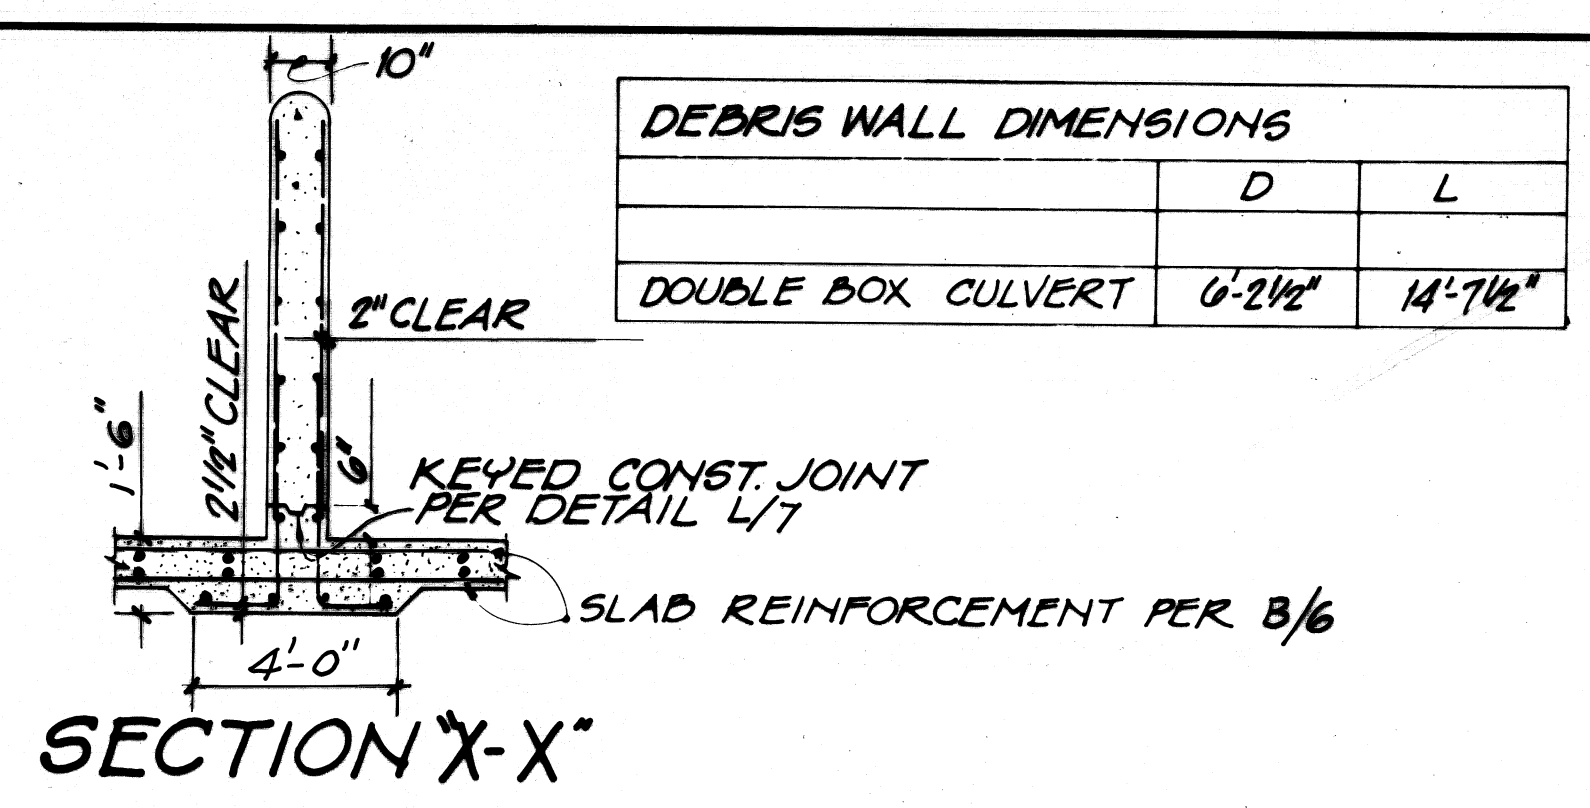 10"
DEBRIS WALL DIMENSIONS
D L
DOUBLE BOX CULVERT 6'-2½" 14'-7½"
2" CLEAR
2½" CLEAR
1'-6"
6"
KEYED CONST. JOINT
PER DETAIL L/7
SLAB REINFORCEMENT PER B/6
4'-0"
SECTION "X-X"